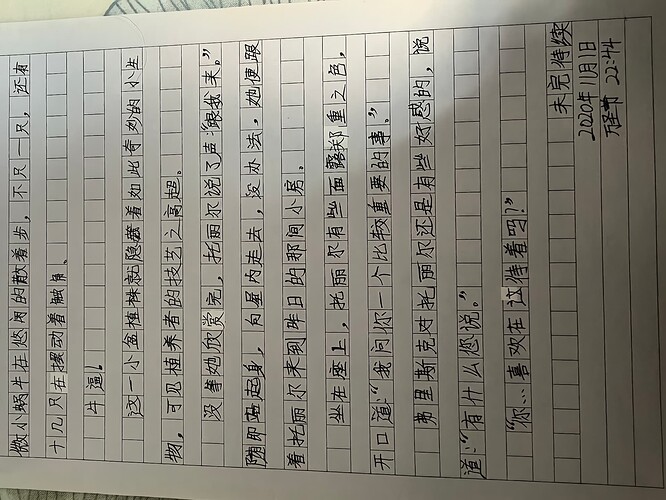 微小蜗牛在悠闲的散着步，不只一只，还有
十几只在摆动着触角。
牛逼！
这一小盆植株就隐藏着如此奇妙的小生
物，可见植养者的技艺之高超。
没等她欣赏完，托丽尔说了声：“跟我来。”
随即站起身，向屋内走去，没办法，她便跟
着托丽尔来到昨日的那间小房。
坐在座上，托丽尔有些面露郑重之色，
开口道：“我问你一个比较重要的事。”
弗里斯克对托丽尔还是有些好感的，说
道：“有什么您说。”
“你…喜欢在这待着吗？”
未完待续
2020年11月1日
22:44